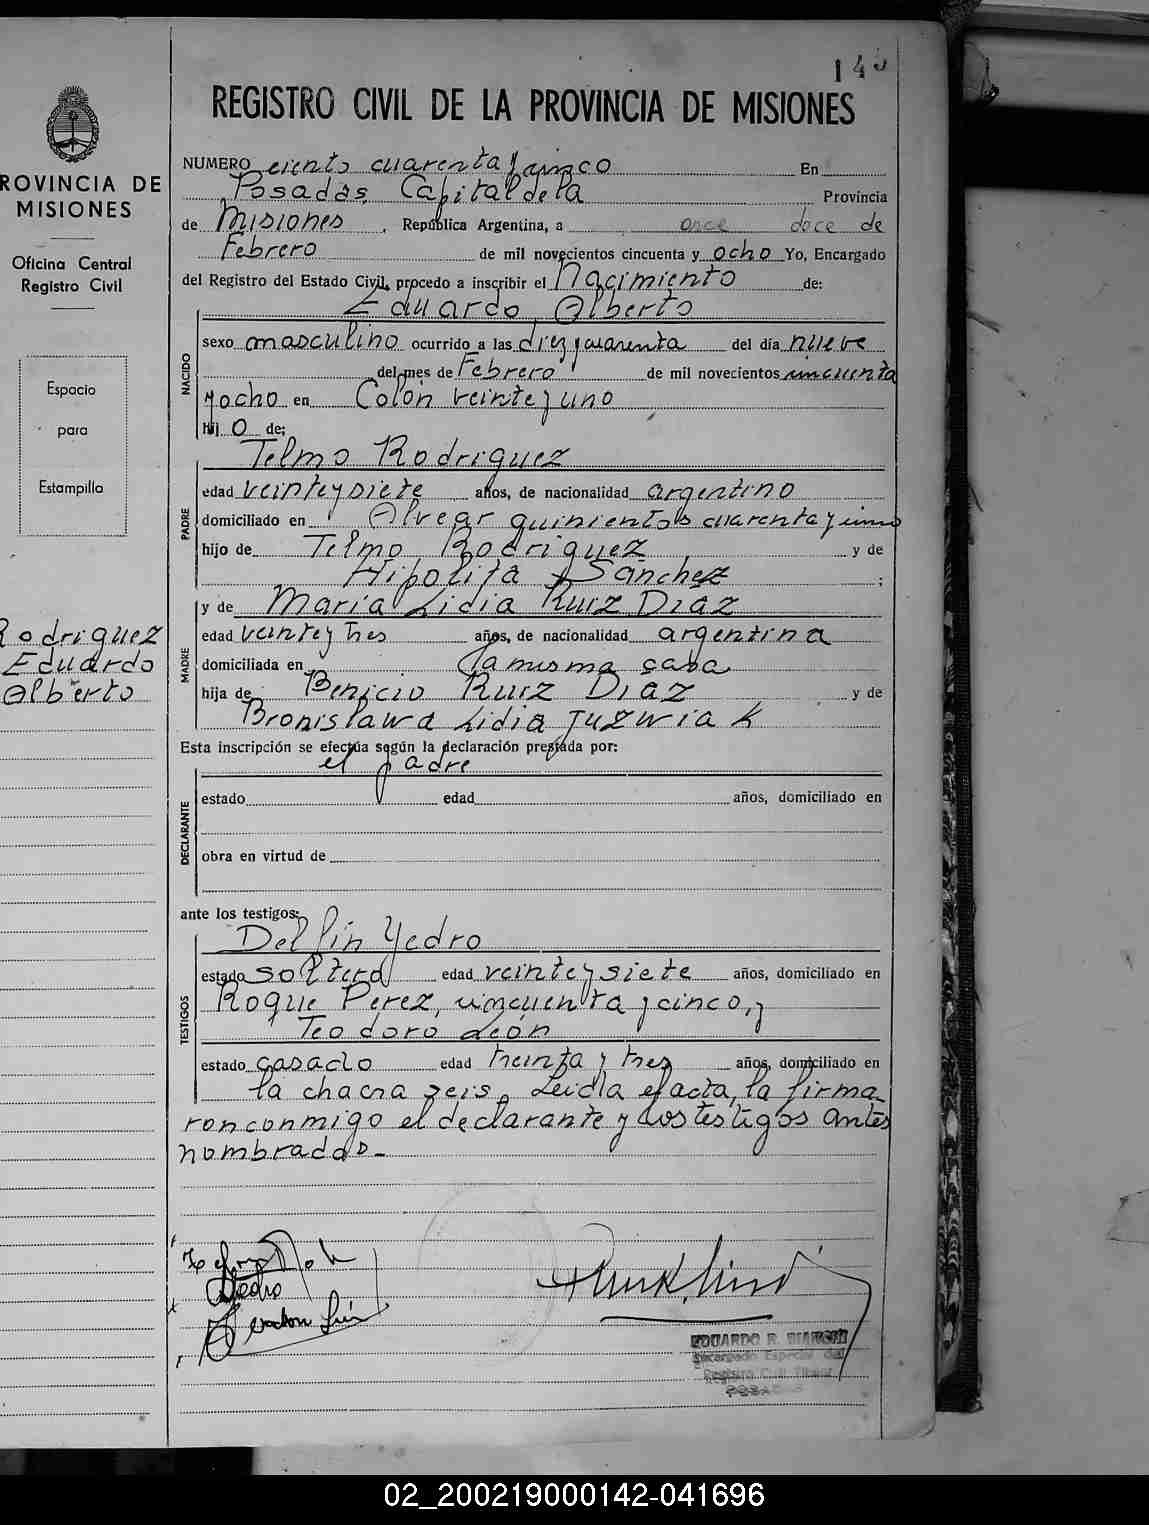 145
REGISTRO CIVIL DE LA PROVINCIA DE MISIONES
NUMERO ciento cuarenta y cinco En
Posadas, Capital de la Provincia
de Misiones, República Argentina, a once doce de
Febrero de mil novecientos cincuenta y ocho Yo, Encargado
del Registro del Estado Civil, procedo a inscribir el Nacimiento de:
Eduardo Alberto
NACIDO
sexo masculino ocurrido a las diez y cuarenta del día nueve
del mes de Febrero de mil novecientos cincuenta
y ocho en Colón veinte y uno
hijo de:
Telmo Rodriguez
PADRE
edad veinte y siete años, de nacionalidad argentino
domiciliado en Alvear quinientos cuarenta y uno
hijo de Telmo Rodriguez y de
Hipolita Sánchez ;
y de María Lidia Ruiz Diaz
MADRE
edad veinte y tres años, de nacionalidad argentina
domiciliada en la misma casa
hija de Benicio Ruiz Diaz y de
Bronislawa Lidia Juzwiak
Esta inscripción se efectúa según la declaración prestada por:
el padre
DECLARANTE
estado edad años, domiciliado en
obra en virtud de
ante los testigos:
Delfin Yedro
TESTIGOS
estado soltero edad veinte y siete años, domiciliado en
Roque Perez, cincuenta y cinco, y
Teodoro León
estado casado edad treinta y tres años, domiciliado en
la chacra seis. Leida el acta, la firma-
ron conmigo el declarante y los testigos antes
nombrados.-
EDUARDO R. BIANCHI
Encargado Especial del
Registro Civil
POSADAS
PROVINCIA DE
MISIONES
Oficina Central
Registro Civil
Espacio
para
Estampilla
Rodriguez
Eduardo
Alberto
02_200219000142-041696